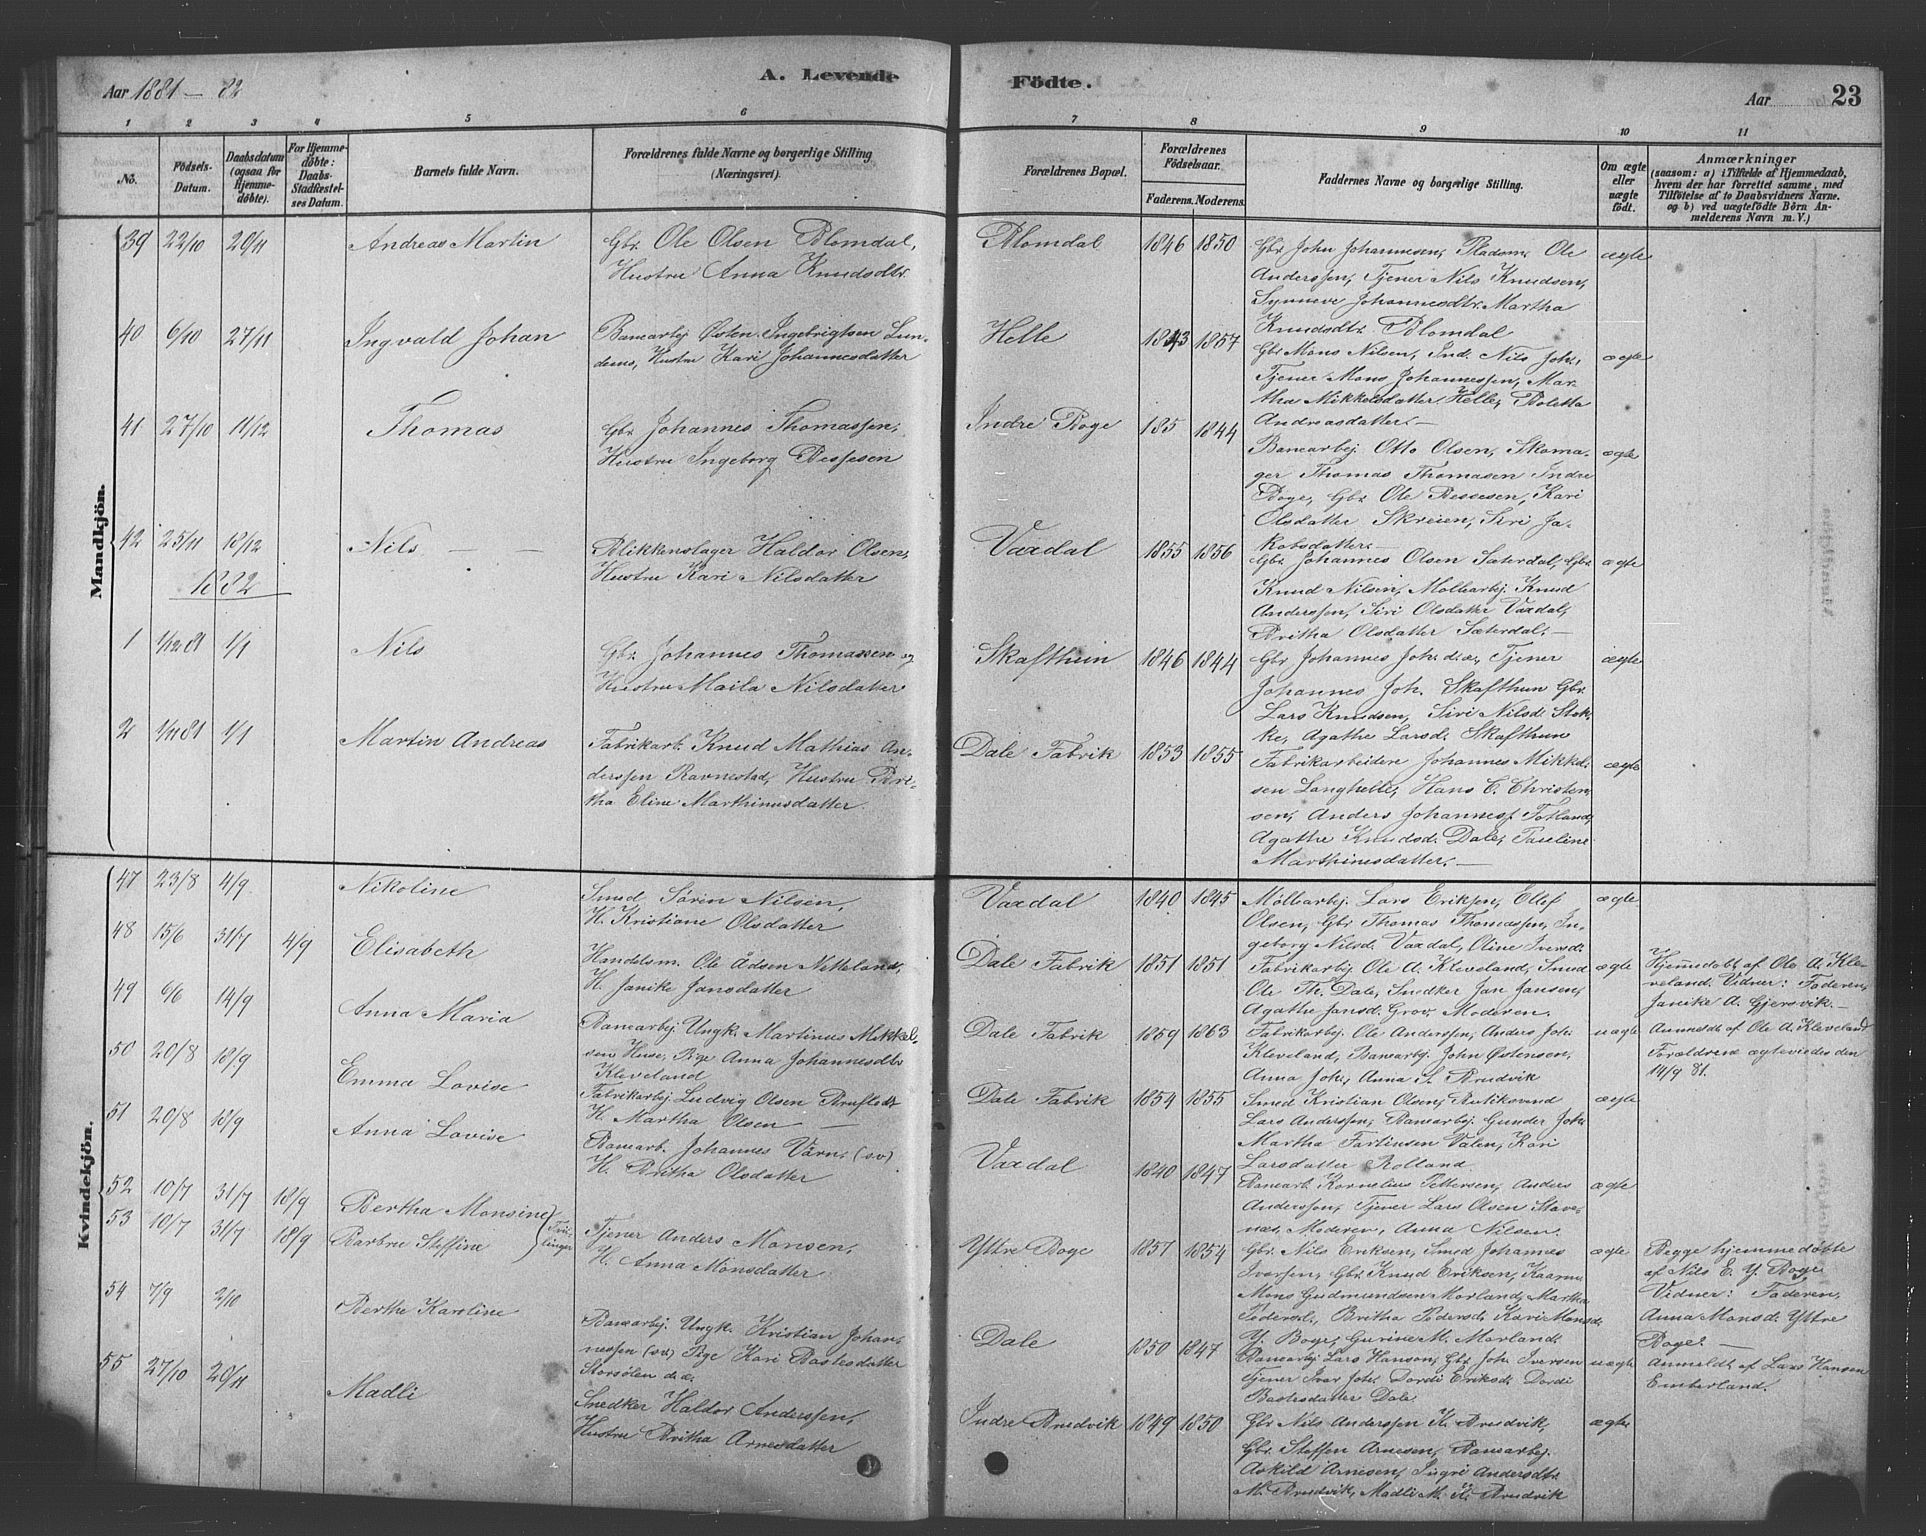 Aar 1881 – 82
A. Levende
Födte.
Aar
23
1 2 3 4 5 6 7 8 9 10 11
No.
Födsels-Datum.
Daabsdatum (ogsaa for Hjemmedöbte).
For Hjemmedöbte: Daabs-Stadfæstelses Datum.
Barnets fulde Navn.
Forældrenes fulde Navne og borgerlige Stilling (Næringsvei).
Forældrenes Bopæl.
Forældrenes Födselsaar.
Faderens. Moderens.
Faddernes Navne og borgerlige Stilling.
Om ægte eller uægte födt.
Anmærkninger
(saasom: a) i Tilfælde af Hjemmedaab,
hvem der har forrettet samme, med
Tilföielse af to Daabsvidners Navne.
og b) ved uægtefödte Börn An-
melderens Navn m. V.)
Mandkjön.
39 22/10 20/11 Andreas Martin
Gbr. Ole Olsen Blomdal,
Hustru Anna Knudsdtr.
Blomdal 1846 1850
Gbr. John Johannesen, Pladsm. Ole
Anderssen, Tjener Nils Knudsen,
Synneve Johannesdtr. Martha
Knudsdtr. Blomdal
ægte
40 6/10 27/11 Ingvald Johan
Banearbej. Østen Ingebrigtsen Lun-
demo, Hustru Kari Johannesdatter
Helle 1843 1857
Gbr. Mons Nilsen, Ind. Nils Joh.,
Tjener Mons Johannessen, Mar-
tha Mikkelsdatter Helle, Boletta
Andreasdatter. —
ægte
41 27/10 11/12 Thomas
Gbr. Johannes Thomassen,
Hustru Ingeborg Bessesen
Indre Boge 185 1844
Banearbej. Otto Olsen, Skoma-
ger Thomas Thomasen Indre
Boge, Gbr. Ole Bessesen, Kari
Olsdatter Skreien, Siri Ja-
kobsdatter. —
ægte
42 25/11 18/12 Nils — —
Blikkenslager Haldor Olsen,
Hustru Kari Nilsdatter
Vaxdal 1855 1856
Gbr. Johannes Olsen Sæterdal, Gbr.
Knud Nilsen, Møllearbej. Knud
Anderssen, Siri Olsdatter Vaxdal,
Britha Olsdatter Sæterdal. —
ægte
1882
1 1/12 81 1/1 Nils
Gbr. Johannes Thomassen og
Hustru Maila Nilsdatter
Skafthun 1846 1844
Gbr. Johannes Joh. d.æ., Tjener
Johannes Joh. Skafthun Gbr.
Lars Knudsen, Siri Nilsd. Stok-
ke, Agathe Larsd. Skafthun
ægte
2 1/11 81 1/1 Martin Andreas
Fabrikarb. Knud Mathias An-
derssen Ravnestad, Hustru Bri-
tha Eline Marthinusdatter.
Dale Fabrik 1853 1855
Fabrikarbeidere Johannes Mikkel-
sen Langhelle, Hans C. Christen-
sen, Anders Johannes. Totland,
Agathe Knudsd. Dale, Pauline
Marthinusdatter. —
ægte
Kvindekjön.
47 23/8 4/9 Nikoline
Smed Sörin Nilsen,
H. Kristiane Olsdatter
Vaxdal 1840 1845
Möllearbej. Lars Eriksen, Ellef
Olsen, Gbr Thomas Thomassen, In-
geborg Nilsd. Vaxdal, Oline Iversd.
ægte
48 15/6 31/7 4/9 Elisabeth
Handelsm. Ole Ådsen Netteland,
H. Janike Jansdatter
Dale Fabrik 1851 1851
Fabrikarbej. Ole A. Kleveland, Smed
Ole Th. Dale, Snedker Jan Jansen,
Agathe Jansd. Grov, Moderen.
ægte
Hjemmedøbt af Ole A. Kle-
veland. Vidner: Faderen,
Janike A. Gjersvik. —
49 6/6 14/9 Anna Maria
Banearbej. Ungk. Martinus Mikkel-
sen Huse, Pige Anna Johannesdtr
Kleveland
Dale Fabrik 1859 1863
Fabrikarbej. Ole Anderssen, Anders Joh.
Kleveland, Banearbej. John Østensen,
Anna Joh., Anna S. Brudvik
uægte
Anmeldt af Ole A Kleveland
Forældrene ægteviedes den
14/9 81.
50 20/8 18/9 Emma Lovise
Fabrikarbej. Ludvig Olsen Brufledt
H. Martha Olsen —
Dale Fabrik 1854 1855
Smed Kristian Olsen,
Lars Anderssen, Banearbej. Gunder Joh.
Martha Valen, Kari
Larsdatter Rolland.
ægte
51 20/8 18/9 Anna Lovise
Banearb. Johannes Värn. (sv)
H. Britha Olsdatter
Vaxdal 1840 1847
Banearb. Kornelius Pettersen, Anders
Anderssen, Tjener Lars Olsen Stave-
næs, Moderen, Anna Nilsen.
ægte
52 10/7 31/7 18/9 Bertha Monsine
53 10/7 31/7 18/9 Barbru Steffine
Tvil-
linger
Tjener Anders Monsen,
H. Anna Monsdatter
Yttre Boge 1857 1854
Gbr. Nils Eriksen, Smed Johannes
Iverssen, Gbr. Knud Eriksen, Kaarmd.
Mons Gudmundsen Morland, Martha
Pedersd., Britha Pedersd., Kari Monsd.
Y. Boge, Gurine M. Morland.
ægte
Begge hjemmedøbte
af Nils E. Y. Boge
Vidner: Faderen,
Anna Monsd. Yttre
Boge. —
54 7/9 2/10 Berthe Karoline
Banearbej. Ungk. Kristian Johan-
nessen (sv) Pige Kari Bastesdatter
Storsölen d.æ.
Dale 1850 1847
Banearbej Lars Hanson, Gbr. Joh. Iversen
tjener Ivar Joh. Dordi Eriksd. Dordi
Bastesdatter Dale.
uægte
Anmeldt af Lars Hansen
Emberland.
55 27/10 20/11 Madli
Snedker Haldor Anderssen,
Hustru Britha Arnesdatter
Indre Brudvik 1849 1850
Gbr. Nils Anderssen K. Brudvik,
Gbr. Steffen Arnesen, Banearbej.
Askild Arnesen, Ingri Andersdtr.
M. Brudvik, Madli M. K. Brudvik
ægte